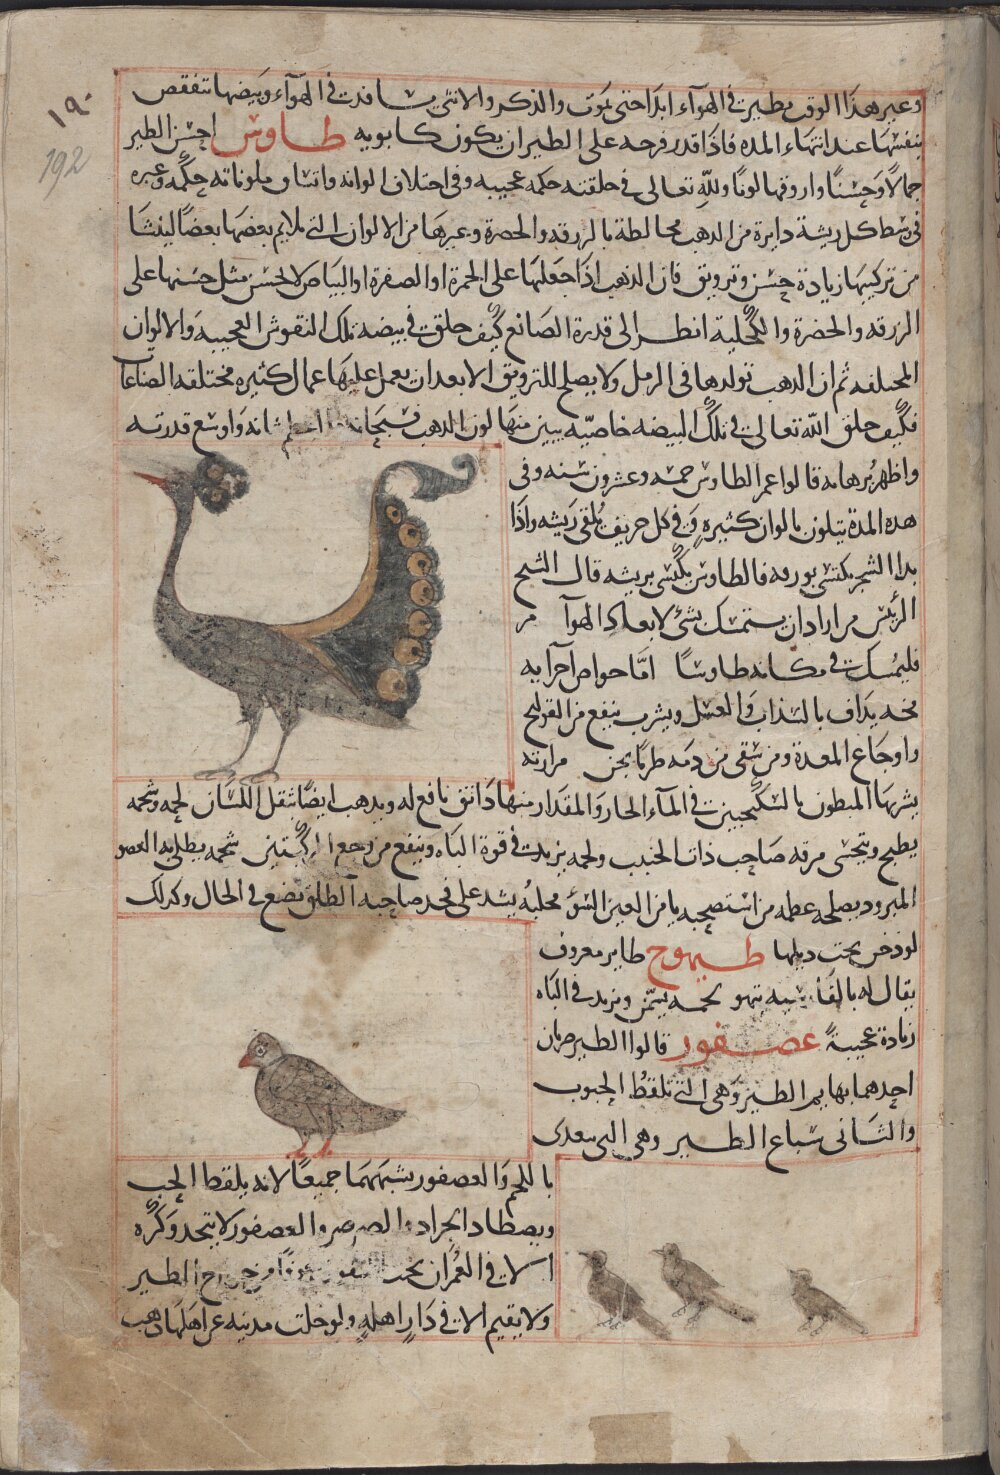 ١٩٠
192
وغير هذا الوقت يطير في الهوآء ابدا حتى يموت والذكر والانثى يتسافدن في الهوآء وبيضها تنفقص
بنفسها عند انتهاء المده فاذا قدر فرخه على الطيران يكون كابويه طاوس احسن الطير
جمالا وحسنا واروقها لونا ولله تعالى في خلقته حكمه عجيبه وفي اختلاف الوانه واتساق ملوناته حكمه وغيره
في وسط كل ريشة دايرة من الدهب مخالطة بالزرقه والخضرة وغيرها من الالوان التى يلايم بعضها بعضا لينشا
من تركيبها زيادة حسن وترويق فان الذهب اذا جعلها على الحمرة او الصفرة او البياض لا يحسن مثل حسنها على
الزرقه والخضرة والكحلية انظر الى قدرة الصانع كيف خلقت في بيضه تلك النقوش العجيبه والالوان
المختلفه ثم ان الدهب تولدها في الرمل ولا يصلح للترويق الا بعد ان يعمل عليها اعمال كثيره مختلفه الصناعات
فكيف خلق الله تعالى في تلك البيضه خاصيه يبين منها لون الدهب فسبحانه ما اعظم شانه واوسع قدرته
واظهر برهانه قالوا عمر الطاوس خمسه وعشرون سنه وفى
هده المدة يتلون بالوان كثيره وفي كل خريف يلقى ريشه واذا
بدا الشجر يكتسى بورقه فالطاوس يكسى بريشه قال الشيخ
الرئيس من اراد ان يستمسك بشئ لابعاد الهوآ مر
فليمسك في مكانه طاوسا اما خواص اجزايه
مخه يداف بالسداب والعسل ويشرب ينفع من القولنج
واوجاع المعدة ومن سقى من دمه طريا يجن مرارته
يشربها المبطون بالسكنجبين في المآء الحار والمقدار منها دانق نافع له ويدهب ايضا بثقل اللسان لحمه وشحمه
يطبخ ويتحسى مرقه صاحب ذات الجنب ولحمه يزيد في قوة الباه وينفع من وجع الركبتين شحمه يطلى به العضو
المبرود يصلحه عظمه من استصحبه يامن العين السوء مخلبه يشد على فخد صاحبه الطلق تضع في الحال وكدلك
لو دخن تحت ديلها طيهوج طاير معروف
يقال له بالفارسيه تيهو لحمه يسمن ويزيد في الباه
زيادة عجيبة عصفور قالوا الطير ضربان
احدهما بهايم الطير وهى التى تلقط الحبوب
والثانى سباع الطير وهى التى تتغدى
باللحم والعصفور يشبههما جميعا لانه يلقط الحب
ويصطاد الجراد والصرصر والعصفور لا يتخد وكره
الا في العمران تحت السقوف خوفا من جوارح الطير
ولا يقيم الا في دار اهله ولو خلت مدينه عن اهلها دهب